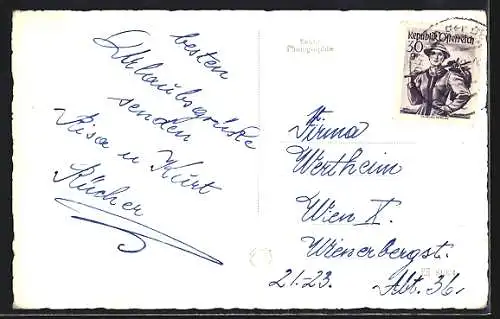 besten
Urlaubsgrüße
senden
Risa u Kurt
Rücher
Echte
Photographie
Republik Österreich
30 g
Firma
Wertheim
Wien X.
Wienerbergst.
21-23. Abt. 36.